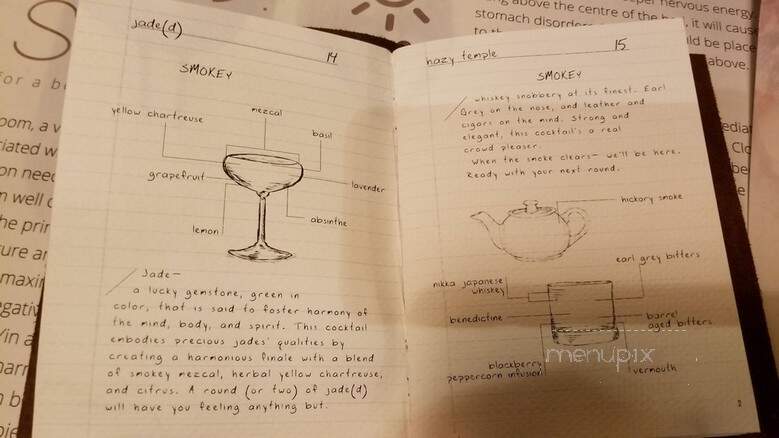 jade(d)
14
SMOKEY
mezcal
yellow chartreuse
basil
grapefruit
lavender
absinthe
lemon
Jade—
a lucky gemstone, green in
color, that is said to foster harmony of
the mind, body, and spirit. This cocktail
embodies precious jades' qualities by
creating a harmonious finale with a blend
of smokey mezcal, herbal yellow chartreuse,
and citrus. A round (or two) of jade(d)
will have you feeling anything but.
hazy temple
15
SMOKEY
whiskey snobbery at its finest. Earl
Grey on the nose, and leather and
cigars on the mind. Strong and
elegant, this cocktail's a real
crowd pleaser.
When the smoke clears— we'll be here.
Ready with your next round.
hickory smoke
earl grey bitters
nikka japanese
whiskey
benedictine
barrel
aged bitters
blackberry
peppercorn infusion
vermouth
menupix
2
above the centre of the
nervous energy
stomach
it will
be place
above.
for a